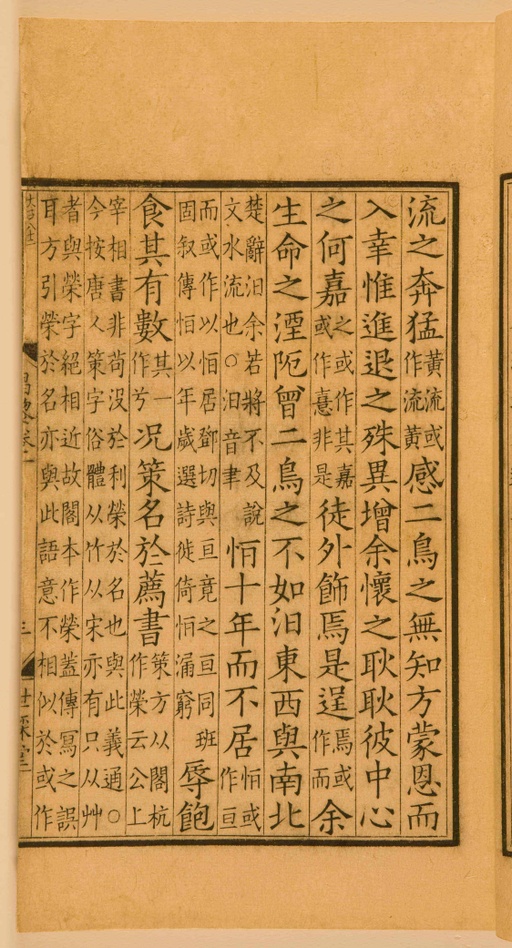 流之奔猛黃流或作流黃感二鳥之無知方蒙恩而
入幸惟進退之殊異增余懷之耿耿彼中心
之何嘉之或作其嘉或作憙非是徒外飾焉是逞焉或作而余
生命之湮阨曾二鳥之不如汩東西與南北
楚辭汩余若將不及說文水流也○汩音聿恒十年而不居恒或作亘
而或作以恒居鄧切與亘竟之亘同班固叙傳恒以年歲選詩徙倚恒漏窮辱飽
食其有數其一作兮况策名於薦書策方从閣杭作榮云公上
宰相書非苟沒於利榮於名也與此義通○今按唐人策字俗體从竹从宋亦有只从艸
者與榮字絕相近故閣本作榮蓋傳冩之誤耳方引榮於名亦與此語意不相似於或作
三
世綵堂